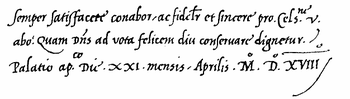 semper satisfacere conabor, ac fidelr et sincere pro. Cels.ne v.
abo: Quam Dns ad vota felicem diu conseruare dignetur.
Palatio ap.co Die. XXI. mensis. Aprilis. M.o D.o XVIII